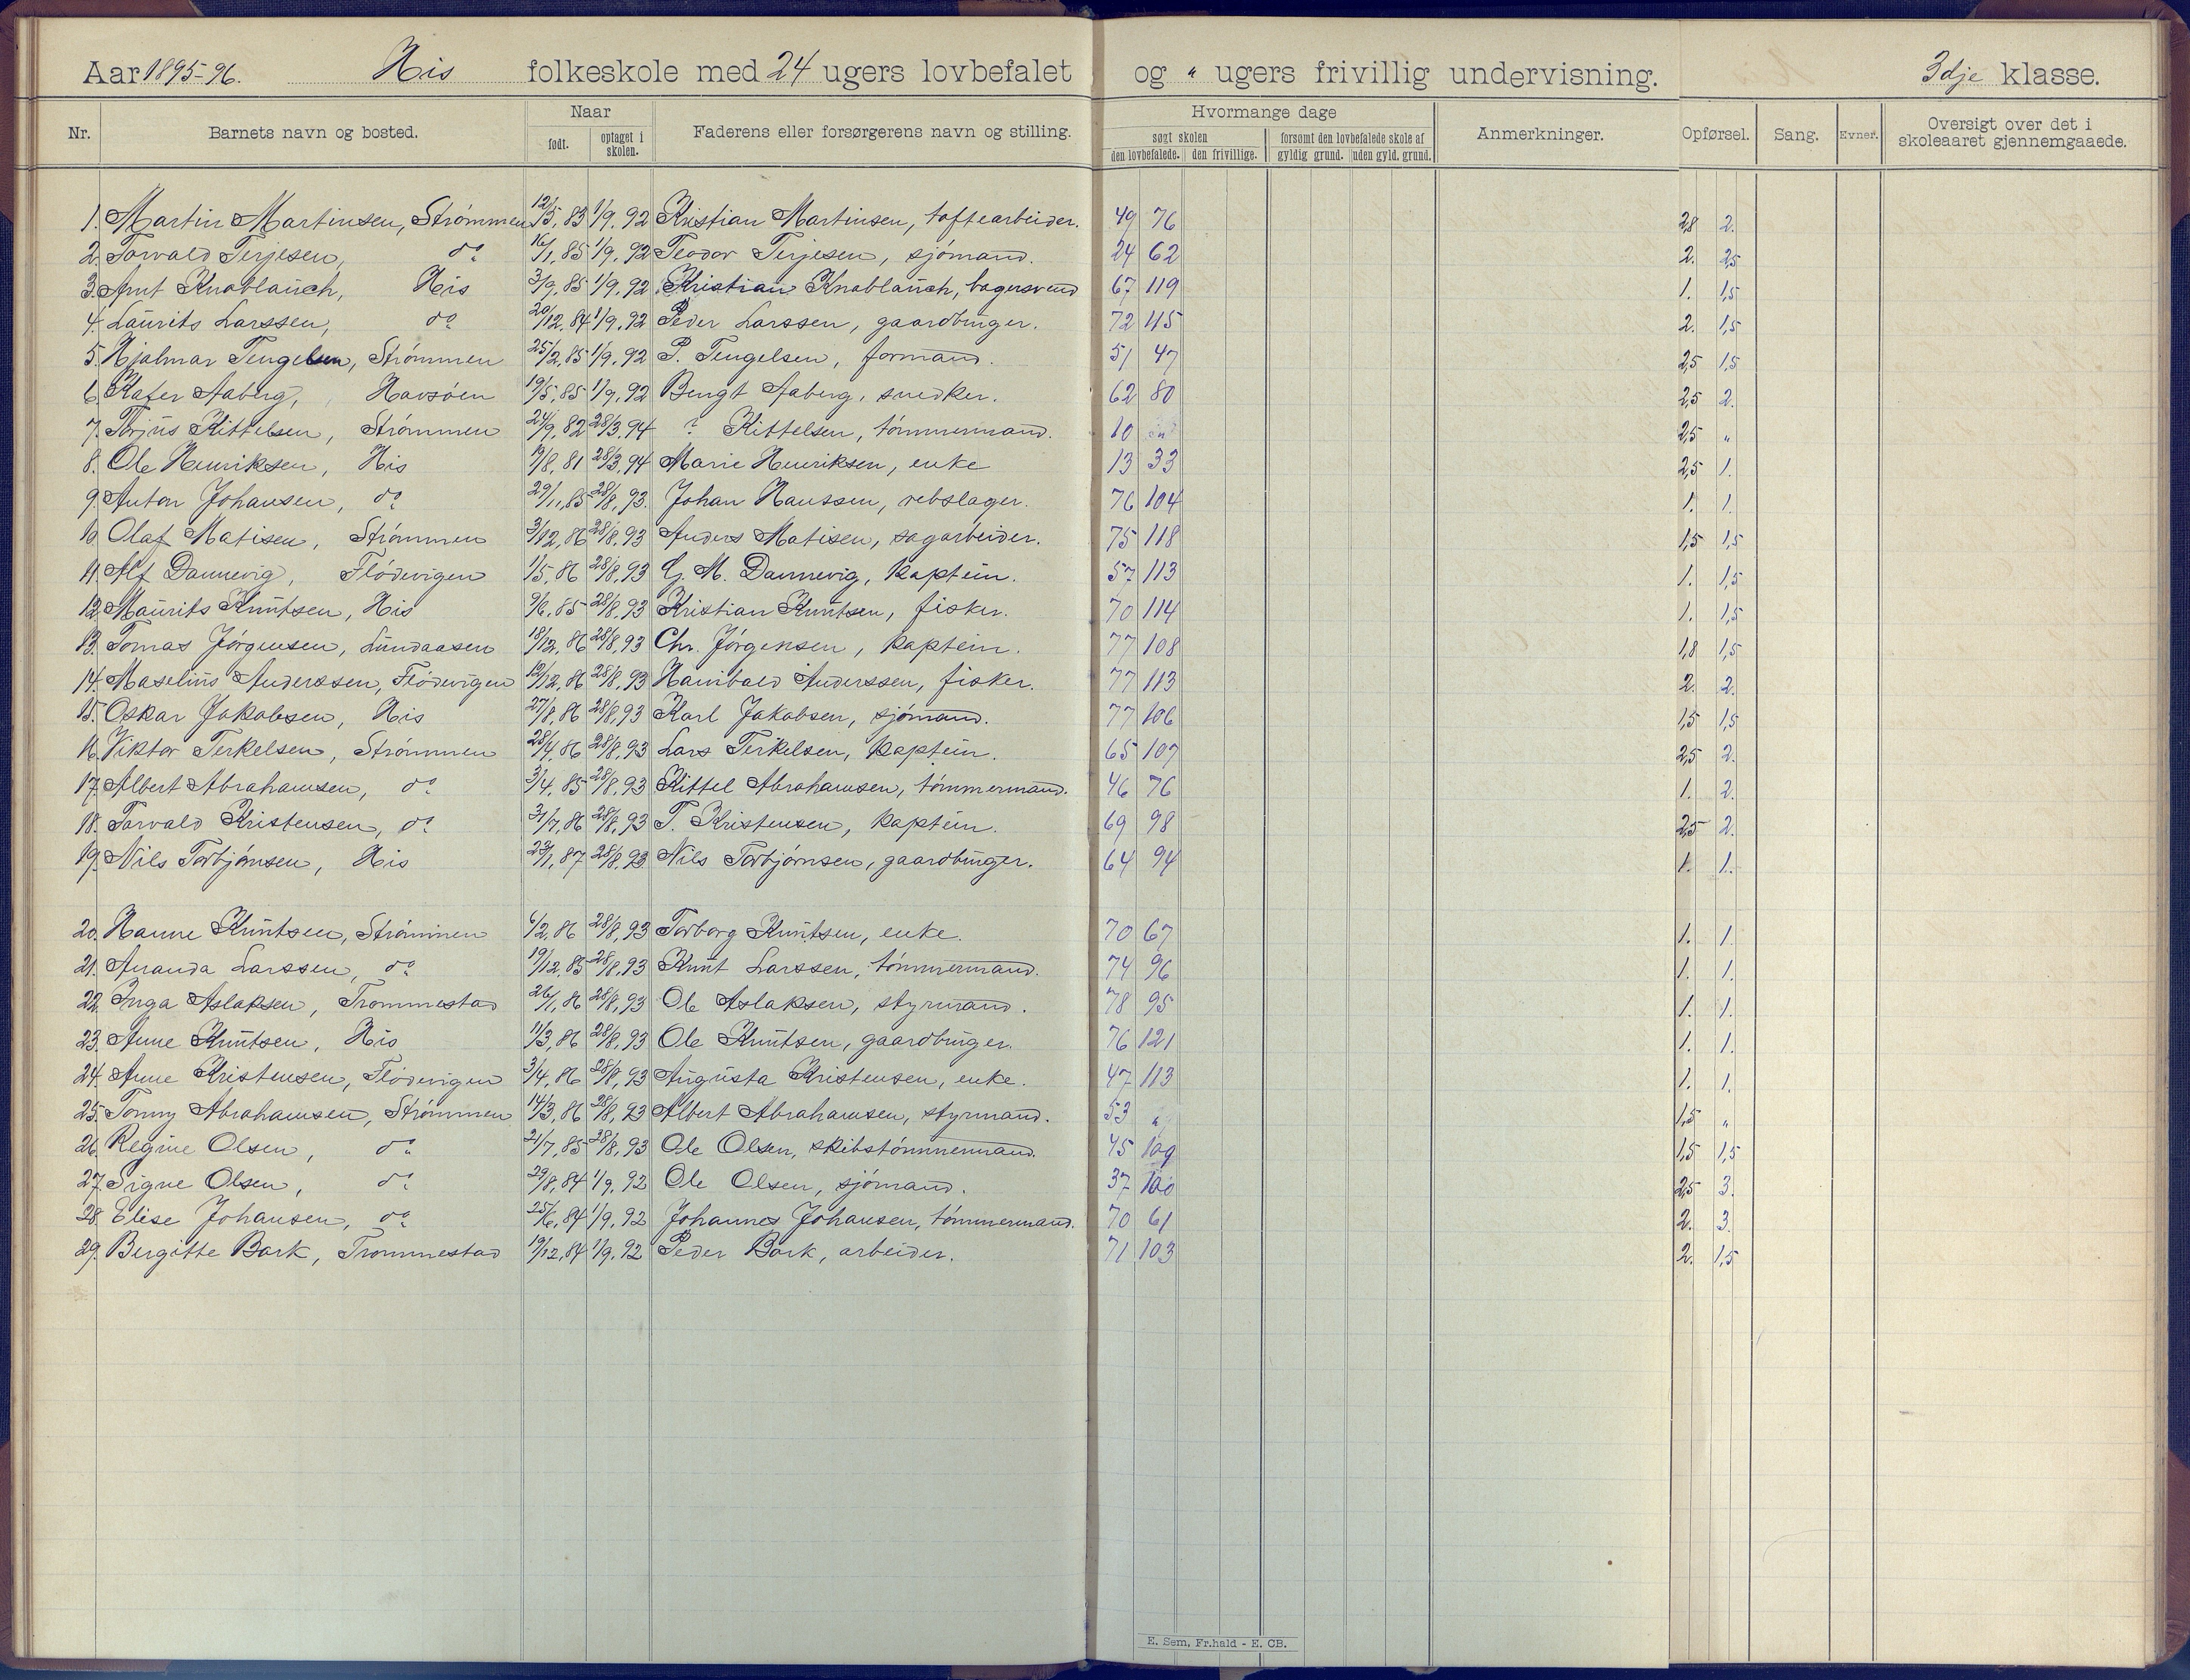 Aar 1895-96. His folkeskole med 24 ugers lovbefalet og " ugers frivillig undervisning. 3dje klasse.
Nr. Barnets navn og bosted. Naar født. optaget i skolen. Faderens eller forsørgerens navn og stilling. Hvormange dage søgt skolen den lovbefalede. den frivillige. forsømt den lovbefalede skole af gyldig grund. uden gyld. grund. Anmerkninger. Opførsel. Sang. Evner. Oversigt over det i skoleaaret gjennemgaaede.
1. Martin Martinsen, Strømmen 12/5, 83 1/9, 92 Kristian Martinsen, toftearbeider. 49 76 2,8 2.
2. Torvald Terjesen, do 16/1, 85 1/9, 92 Teodor Terjesen, sjømand. 24 62 2. 2,5
3. Arnt Knoblauch, His 3/9, 85 1/9, 92 Kristian Knoblauch, bagersvend 67 119 1. 1,5
4. Laurits Larssen, do 20/12, 84 1/9, 92 Peder Larssen, gaardbruger. 72 115 2. 1,5
5. Hjalmar Tengelsen, Strømmen 25/2, 85 1/9, 92 P. Tengelsen, formand. 51 47 2,5 1,5
6. Rafer Aaberg, Havsøen 19/5, 85 1/9, 92 Bengt Aaberg, snedker. 62 80 2,5 2.
7. Torjus Kittelsen, Strømmen 24/9, 82 28/3, 94 ? Kittelsen, tømmermand. 10 " 2,5 "
8. Ole Henriksen, His 19/8, 81 28/3, 94 Marie Henriksen, enke 13 33 2,5 1.
9. Anton Johansen, do 29/11, 85 28/8, 93. Johan Hanssen, rebslager. 76 104 1. 1.
10. Olaf Matisen, Strømmen 3/12, 86 28/8, 93 Anders Matisen, sagarbeider. 75 118 1,5 1,5
11. Alf Dannevig, Flødevigen 1/5, 86 28/8, 93 G. M. Dannevig, kaptein. 57 113 1. 1,5
12. Maurits Knutsen, His 9/6, 85 28/8, 93 Kristian Knutsen, fisker. 70 114 1. 1,5
13. Tomas Jørgensen, Lundaasen 18/12, 86 28/8, 93 Chr. Jørgensen, kaptein. 77 108 1,8 1,5
14. Maselius Anderssen, Flødevigen 12/12, 86 28/8, 93 Hanibald Anderssen, fisker. 77 113 2. 2.
15. Oskar Jakobsen, His 27/8, 86 28/8, 93 Karl Jakobsen, sjømand. 77 106 1,5 1,5
16. Viktor Terkelsen, Strømmen 28/4, 86 28/8, 93 Lars Terkelsen, kaptein. 65 107 2,5 2.
17. Albert Abrahamsen, do 3/4, 85 28/8, 93 Kittel Abrahamsen, tømmermand. 46 76 1. 2.
18. Torvald Kristensen, do 31/7, 86 28/8, 93 T. Kristensen, kaptein. 69 98 2,5 2.
19. Nils Torbjørnsen, His 29/1, 87 28/8, 93 Nils Torbjørnsen, gaardbruger. 64 94 1. 1.
20. Hanne Knutsen, Strømmen 6/2, 86 28/8, 93 Torborg Knutsen, enke. 70 67 1. 1.
21. Amanda Larssen, do 19/12, 85 28/8, 93 Knut Larssen, tømmermand. 74 96 1. 1.
22. Inga Aslaksen, Trommestad 26/1, 86 28/8, 93 Ole Aslaksen, styrmand. 78 95 1. 1.
23. Anne Knutsen, His 11/3, 86 28/8, 93 Ole Knutsen, gaardbruger. 76 121 1. 1.
24. Anne Kristensen, Flødevigen 3/4, 86 28/8, 93 Augusta Kristensen, enke. 47 113 1. 1.
25. Tonny Abrahamsen, Strømmen 14/3, 86 28/8, 93 Albert Abrahamsen, styrmand. 53 " 1,5 "
26. Regine Olsen, do 21/7, 85 28/8, 93 Ole Olsen, skibstømmermand. 45 109 1,5 1,5
27. Signe Olsen, do 29/8, 84 1/9, 92 Ole Olsen, sjømand. 37 100 2,5 3.
28. Elise Johansen, do 25/6, 84 1/9, 92 Johannes Johansen, tømmermand. 70 61 2. 3.
29. Bergitte Bork, Trommestad 19/12, 84 1/9, 92 Peder Bork, arbeider. 71 103 2. 1,5
E. Sem, Fr.hald - E. CB.